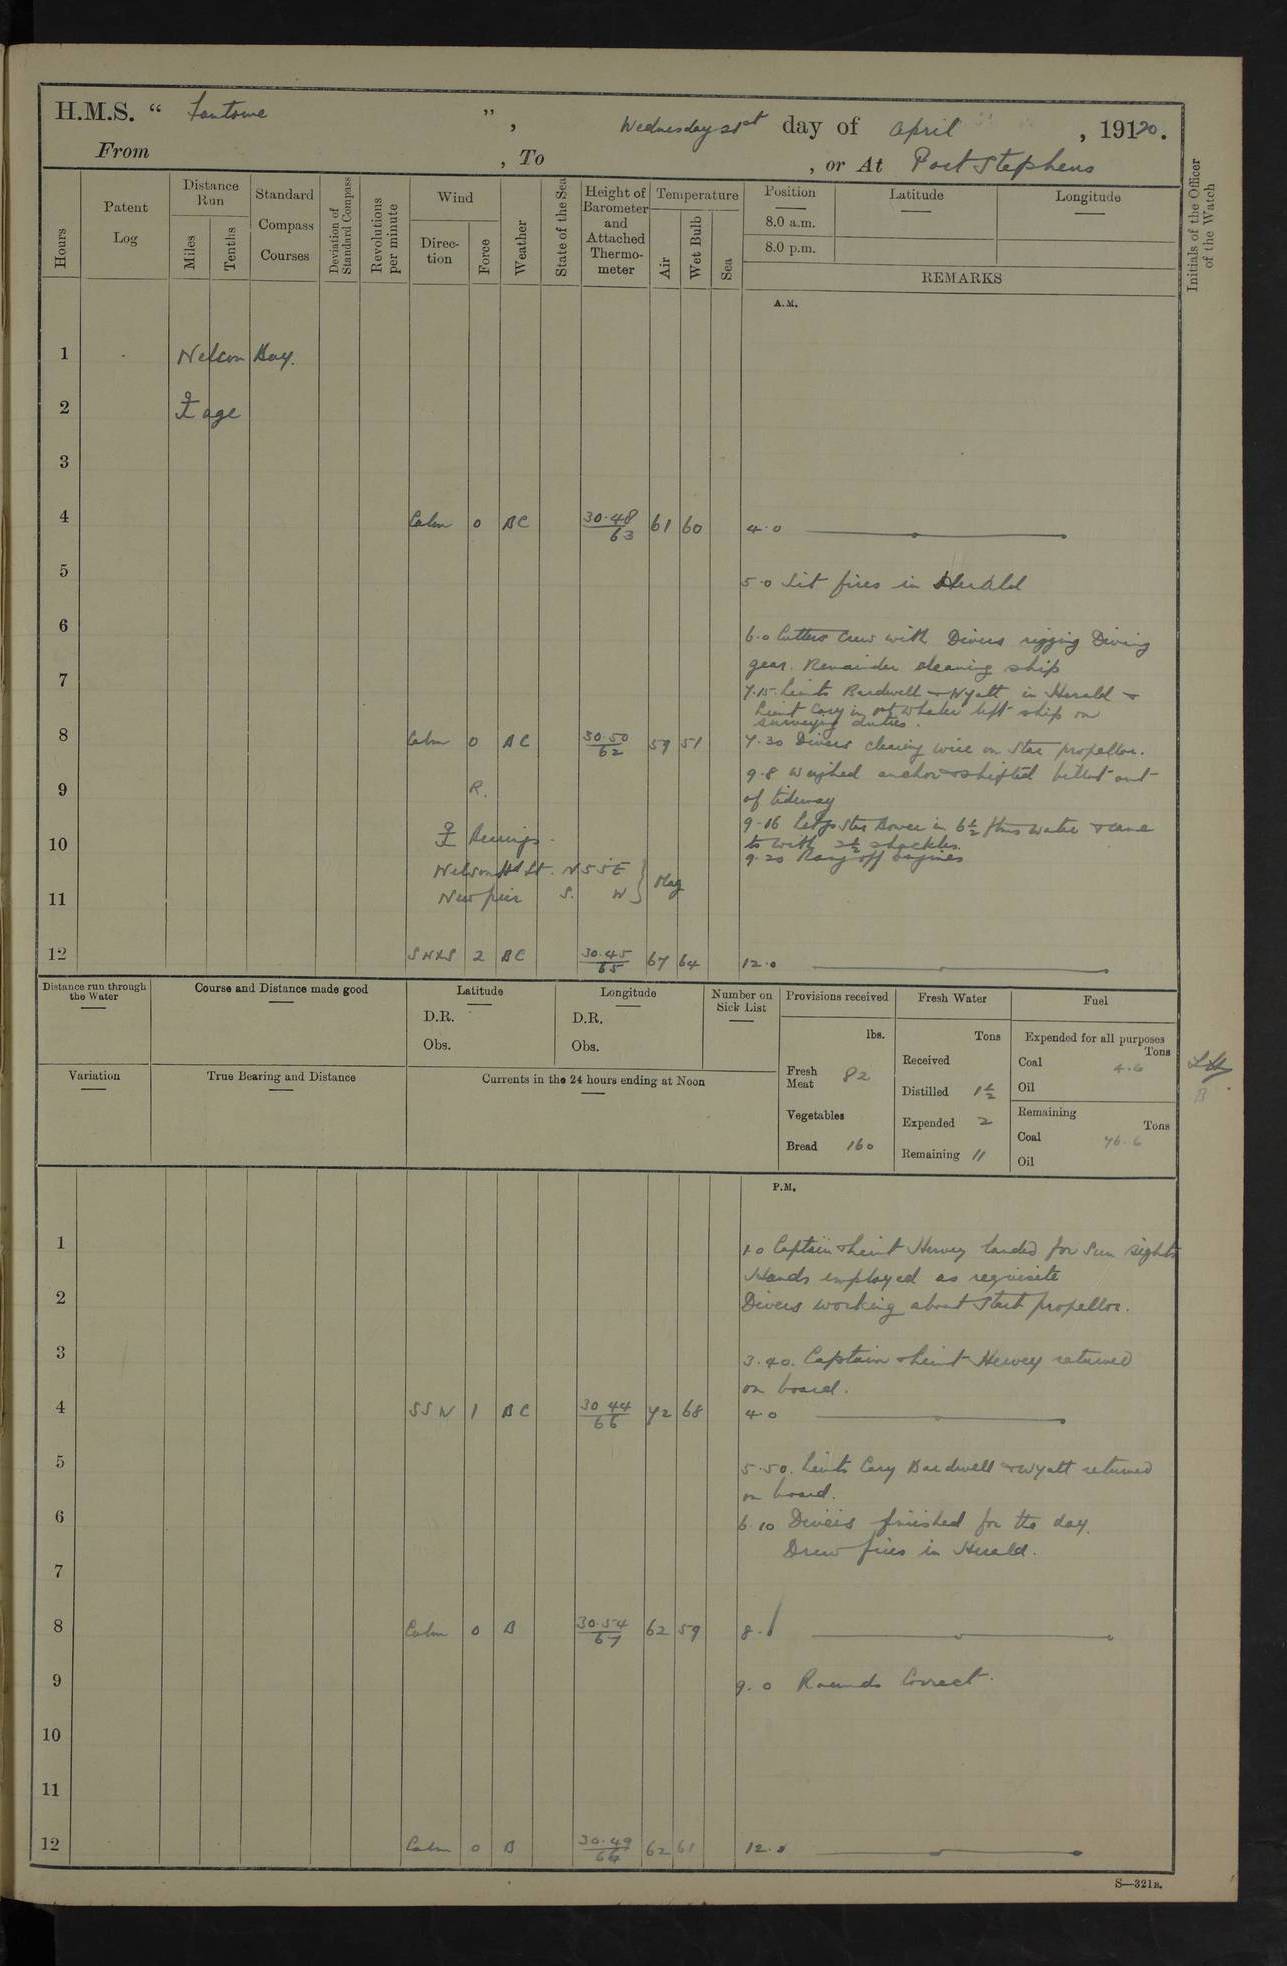 H.M.S. “ Fantome ”, Wednesday 21st day of April , 19120.
From , To , or At Port Stephens
Hours
Patent Log
Distance Run
Miles
Tenths
Standard Compass Courses
Deviation of Standard Compass
Revolutions per minute
Wind
Direction
Force
Weather
State of the Sea
Height of Barometer and Attached Thermometer
Temperature
Air
Wet Bulb
Sea
Position
8.0 a.m.
8.0 p.m.
Latitude
Longitude
REMARKS
Initials of the Officer of the Watch
A.M.
1 Nelson Bay.
2 age
3
4 Calm 0 BC 30.48/63 61 60 4.0
5 5.0 Lit fires in Herald
6 6.0 Cutters Crew with Divers rigging Diving
gear. Remainder cleaning ship
7 7.15 Lieuts Bardwell & Wyatt in Herald &
Lieut Cary in whaler left ship on
surveying duties.
8 Calm 0 BC 30.50/62 59 51 7.30 Divers clearing wire on Star propellor.
9.8 Weighed anchor & shifted billet out
9 R. of tideway
9.16 Letgo Star Bower in 6½ fms water & came
10 Bearings to with 2½ shackles.
9.20 Rang off Engines
Nelson Hd Lt. N 55 E
11 New pier S. W } Mag
12 SW×S 2 BC 30.45/65 67 64 12.0
Distance run through the Water
Course and Distance made good
Latitude
D.R.
Obs.
Longitude
D.R.
Obs.
Number on Sick List
Variation
True Bearing and Distance
Currents in the 24 hours ending at Noon
Provisions received
lbs.
Fresh Meat 82
Vegetables
Bread 160
Fresh Water
Tons
Received
Distilled 1½
Expended 2
Remaining 11
Fuel
Expended for all purposes
Tons
Coal 4.6
Oil
Remaining
Tons
Coal 76.6
Oil
P.M.
1 1.0 Captain & Lieut Hervey landed for Sun sights
Hands employed as requisite
2 Divers working about Starb propellor.
3 3.40. Captain & Lieut Hervey returned
on board.
4 SSW 1 BC 30.44/66 72 68 4.0
5 5.50. Lieuts Cary Bardwell & Wyatt returned
on board.
6 6.10 Divers finished for the day.
Drew fires in Herald.
7
8 Calm 0 B 30.54/67 62 59 8.
9 9.0 Rounds Correct.
10
11
12 Calm 0 B 30.49/66 62 61 12.0
S—321B.